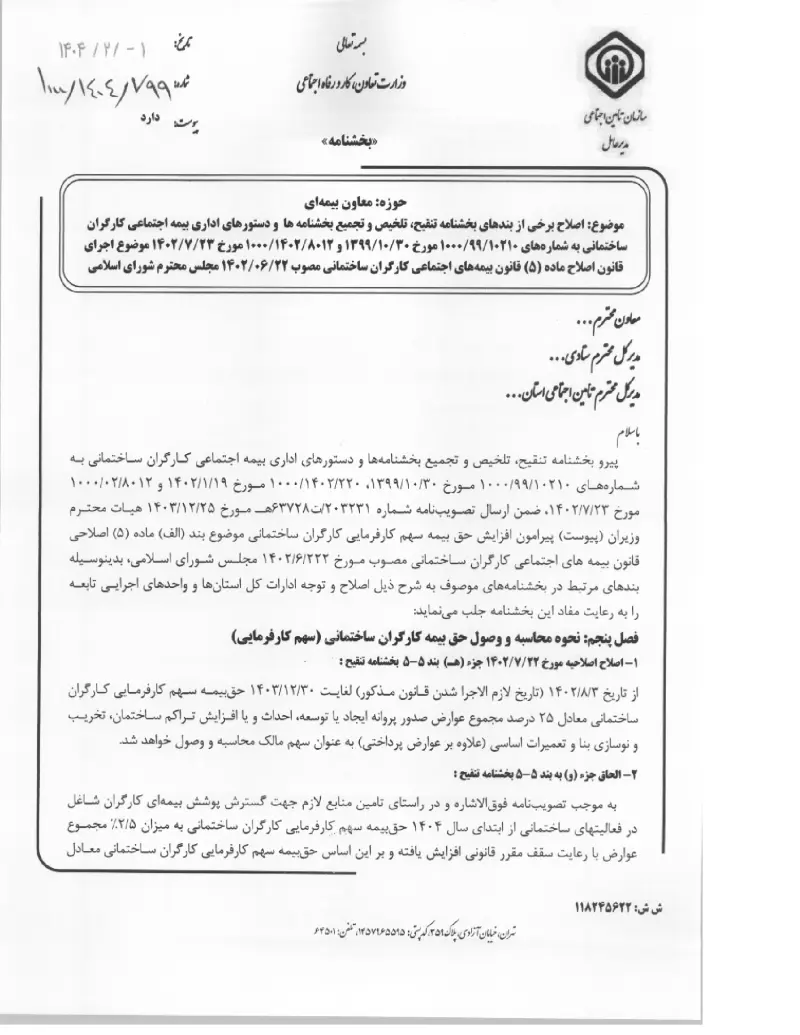 بسمه تعالی
وزارت تعاون، کار و رفاه اجتماعی
«بخشنامه»
تاریخ: ۱۴۰۴/۲/۰۱
شماره: ۱۰۰۰/۱۴۰۴/۷۹۹
پیوست: دارد
سازمان تأمین اجتماعی
مدیرعامل
حوزه: معاون بیمه‌ای
موضوع: اصلاح برخی از بندهای بخشنامه تنقیح، تلخیص و تجمیع بخشنامه ها و دستورهای اداری بیمه اجتماعی کارگران
ساختمانی به شماره‌های ۱۰۰۰/۹۹/۱۰۲۱۰ مورخ ۱۳۹۹/۱۰/۳۰ و ۱۰۰۰/۱۴۰۲/۸۰۱۲ مورخ ۱۴۰۲/۷/۲۳ موضوع اجرای
قانون اصلاح ماده (۵) قانون بیمه‌های اجتماعی کارگران ساختمانی مصوب ۱۴۰۲/۰۶/۲۲ مجلس محترم شورای اسلامی
معاون محترم...
مدیرکل محترم ستادی...
مدیرکل محترم تأمین اجتماعی استان...
باسلام
پیرو بخشنامه تنقیح، تلخیص و تجمیع بخشنامه‌ها و دستورهای اداری بیمه اجتماعی کارگران ساختمانی به
شماره‌های ۱۰۰۰/۹۹/۱۰۲۱۰ مورخ ۱۳۹۹/۱۰/۳۰، ۱۰۰۰/۱۴۰۲/۲۲۰ مورخ ۱۴۰۲/۱/۱۹ و ۱۰۰۰/۰۲/۸۰۱۲
مورخ ۱۴۰۲/۷/۲۳، ضمن ارسال تصویب‌نامه شماره ۲۰۳۲۳۱/ت۶۳۷۲۸هـ مورخ ۱۴۰۳/۱۲/۲۵ هیات محترم
وزیران (پیوست) پیرامون افزایش حق بیمه سهم کارفرمایی کارگران ساختمانی موضوع بند (الف) ماده (۵) اصلاحی
قانون بیمه های اجتماعی کارگران ساختمانی مصوب مورخ ۱۴۰۲/۶/۲۲۲ مجلس شورای اسلامی، بدینوسیله
بندهای مرتبط در بخشنامه‌های موصوف به شرح ذیل اصلاح و توجه ادارات کل استان‌ها و واحدهای اجرایی تابعه
را به رعایت مفاد این بخشنامه جلب می‌نماید:
فصل پنجم: نحوه محاسبه و وصول حق بیمه کارگران ساختمانی (سهم کارفرمایی)
۱- اصلاح اصلاحیه مورخ ۱۴۰۲/۷/۲۲ جزء (هـ) بند ۵-۵ بخشنامه تنقیح:
از تاریخ ۱۴۰۲/۸/۳ (تاریخ لازم الاجرا شدن قانون مذکور) لغایت ۱۴۰۳/۱۲/۳۰ حق‌بیمه سهم کارفرمایی کارگران
ساختمانی معادل ۲۵ درصد مجموع عوارض صدور پروانه ایجاد یا توسعه، احداث و یا افزایش تراکم ساختمان، تخریب
و نوسازی بنا و تعمیرات اساسی (علاوه بر عوارض پرداختی) به عنوان سهم مالک محاسبه و وصول خواهد شد.
۲- الحاق جزء (و) به بند ۵-۵ بخشنامه تنقیح:
به موجب تصویب‌نامه فوق‌الاشاره و در راستای تامین منابع لازم جهت گسترش پوشش بیمه‌ای کارگران شاغل
در فعالیتهای ساختمانی از ابتدای سال ۱۴۰۴ حق‌بیمه سهم کارفرمایی کارگران ساختمانی به میزان ۲/۵٪ مجموع
عوارض با رعایت سقف مقرر قانونی افزایش یافته و بر این اساس حق‌بیمه سهم کارفرمایی کارگران ساختمانی معادل
ش ش: ۱۱۸۲۴۵۶۲۲
تهران، خیابان آزادی، پلاک ۲۵۱، کدپستی: ۱۴۵۷۹۶۵۵۹۵، تلفن: ۶۴۵۰۱